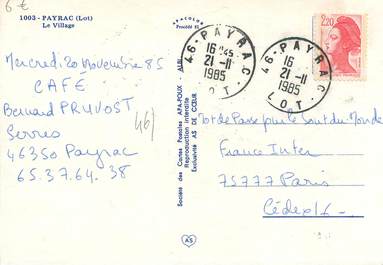 6 €
1003 - PAYRAC (Lot)
Le Village
Mercredi 20 Novembre 85
CAFÉ
Bernard PRUVOST
Serres
46350 Payrac
65.37.64.38
46
APA-POUX - ALBI
Société des Cartes Postales APA-POUX - ALBI
Reproduction interdite
Exclusivité AS DE CŒUR
AS
46 - PAYRAC
16 H45
21 - 11
1985
LOT
46 - PAYRAC
16
21 - 11
1985
LOT
2,20
Mot de Passe pour le bout du Monde
France Inter
75777 Paris
Cédex 16